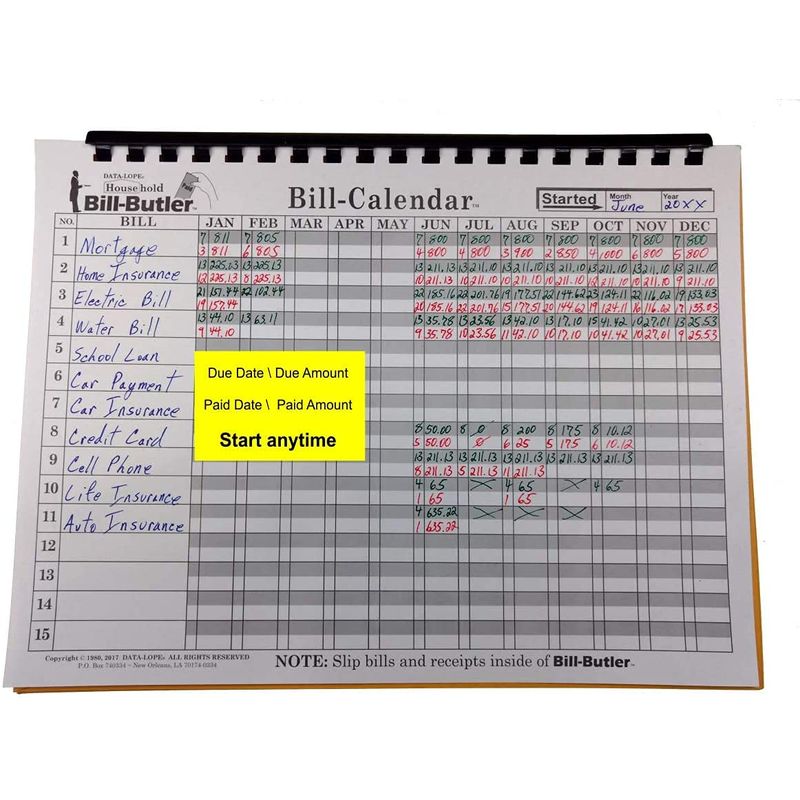 DATA-LOPE®
Household
Bill-Butler™
Paid
Bill-Calendar™
Started Month June Year 20XX
NO. BILL JAN FEB MAR APR MAY JUN JUL AUG SEP OCT NOV DEC
1 Mortgage 7 811 7 805 7 800 7 800 7 800 7 800 7 800 7 800 7 800
3 811 6 805 4 800 4 800 3 900 2 850 4 1000 6 800 5 800
2 Home Insurance 13 225.13 13 225.13 13 211.13 13 211.10 13 211.10 13 211.10 13 211.10 13 211.10 13 211.10
12 225.13 8 225.13 10 211.13 10 211.10 10 211.10 10 211.10 12 211.10 9 211.10
3 Electric Bill 21 157.44 22 102.44 22 185.16 22 201.76 19 177.51 22 144.62 23 124.11 22 116.02 19 133.03
19 157.44 20 185.16 22 201.76 15 177.51 20 144.62 19 124.11 16 116.02 17 133.03
4 Water Bill 13 44.10 13 63.11 13 35.78 13 23.56 13 42.10 13 17.10 15 41.42 10 27.01 13 25.53
9 44.10 9 35.78 13 23.56 11 42.10 10 17.10 10 41.42 10 27.01 9 25.53
5 School Loan
6 Car Payment
7 Car Insurance
Due Date \ Due Amount
Paid Date \ Paid Amount
Start anytime
8 Credit Card 8 50.00 8 0 8 200 8 175 8 10.12
5 50.00 5 0 6 25 5 175 6 10.12
9 Cell Phone 13 211.13 13 211.13 13 211.13 13 211.13 13 211.13
8 211.13 5 211.13 11 211.13
10 Life Insurance 4 65 4 65 4 65
1 65 1 65
11 Auto Insurance 4 635.22
1 635.22
12
13
14
15
Copyright © 1980, 2017 DATA-LOPE® ALL RIGHTS RESERVED
P.O. Box 740334 ~ New Orleans, LA 70174-0334
NOTE: Slip bills and receipts inside of Bill-Butler™